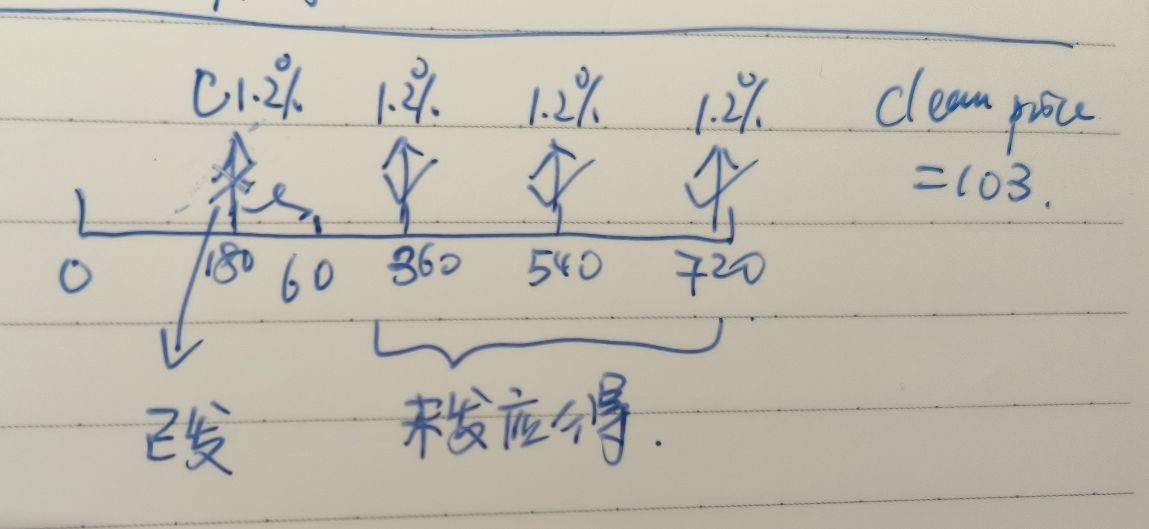 C1.2% 1.2% 1.2% 1.2% Clean price
=103.
0 180 60 360 540 720
已发 未发应个得.